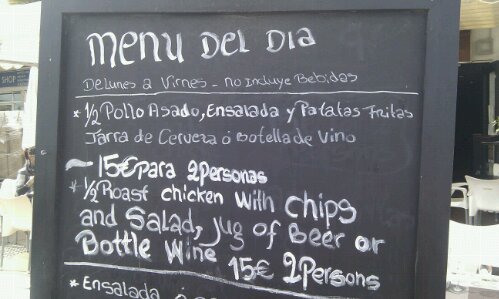 SHOP
MENU DEL DIA
De Lunes a Virnes - no Incluye Bebidas
* 1/2 Pollo Asado, Ensalada y Patatas Fritas
Jarra de Cerveza ó Botella de Vino
~ 15€ Para 2 Personas
* 1/2 Roast chicken with chips
and Salad, jug of Beer or
Bottle Wine 15€ 2 Persons
* Ensalada